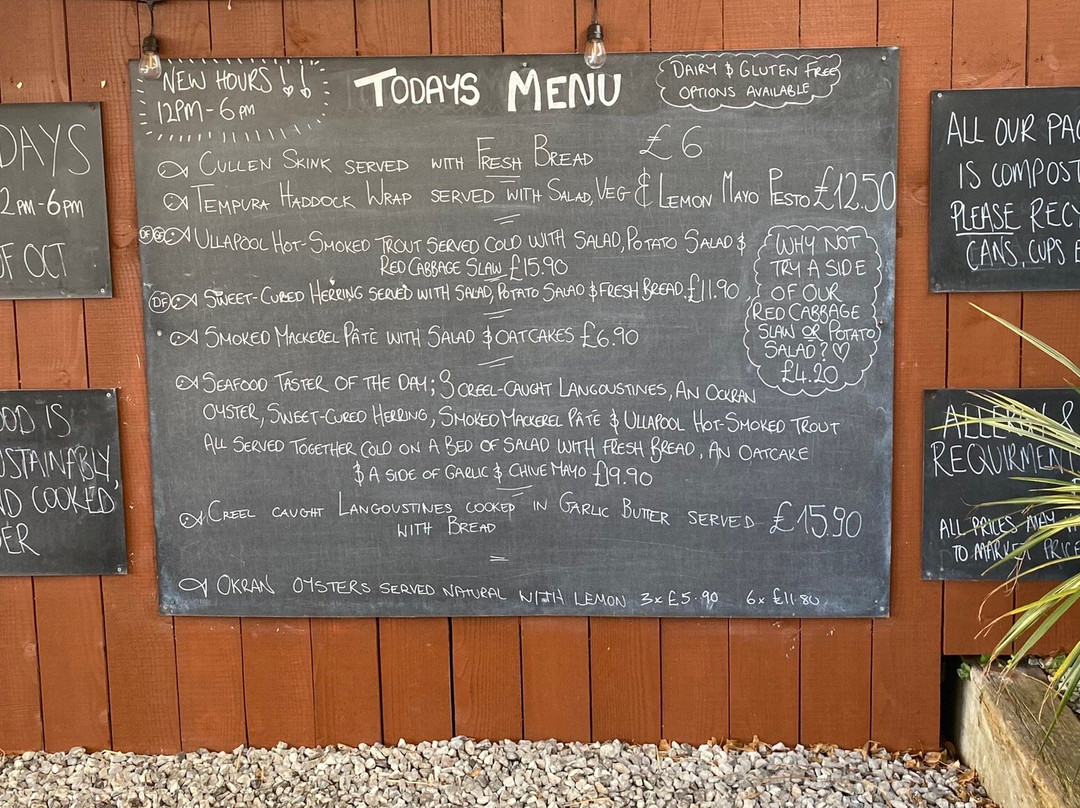 NEW HOURS!!
12PM-6PM
TODAYS MENU
DAIRY & GLUTEN FREE
OPTIONS AVAILABLE
CULLEN SKINK SERVED WITH FRESH BREAD £6
TEMPURA HADDOCK WRAP SERVED WITH SALAD, VEG & LEMON MAYO PESTO £12.50
DF GF ULLAPOOL HOT-SMOKED TROUT SERVED COLD WITH SALAD, POTATO SALAD &
RED CABBAGE SLAW £15.90
DF SWEET-CURED HERRING SERVED WITH SALAD, POTATO SALAD & FRESH BREAD. £11.90
SMOKED MACKEREL PÂTÉ WITH SALAD & OATCAKES £6.90
WHY NOT
TRY A SIDE
OF OUR
RED CABBAGE
SLAW OR POTATO
SALAD? ♡
£4.20
SEAFOOD TASTER OF THE DAY; 3 CREEL-CAUGHT LANGOUSTINES, AN OCKRAN
OYSTER, SWEET-CURED HERRING, SMOKED MACKEREL PÂTÉ & ULLAPOOL HOT-SMOKED TROUT
ALL SERVED TOGETHER COLD ON A BED OF SALAD WITH FRESH BREAD, AN OATCAKE
& A SIDE OF GARLIC & CHIVE MAYO £19.90
CREEL CAUGHT LANGOUSTINES COOKED IN GARLIC BUTTER SERVED £15.90
WITH BREAD
OKRAN OYSTERS SERVED NATURAL WITH LEMON 3x £5.90 6x £11.80
DAYS
2PM-6PM
OF OCT
OOD IS
USTAINABLY,
ND COOKED
DER
ALL OUR PAC
IS COMPOST
PLEASE RECY
CANS, CUPS
ALLERGY &
REQUIRMENT
ALL PRICES MAY
TO MARKET PRICE